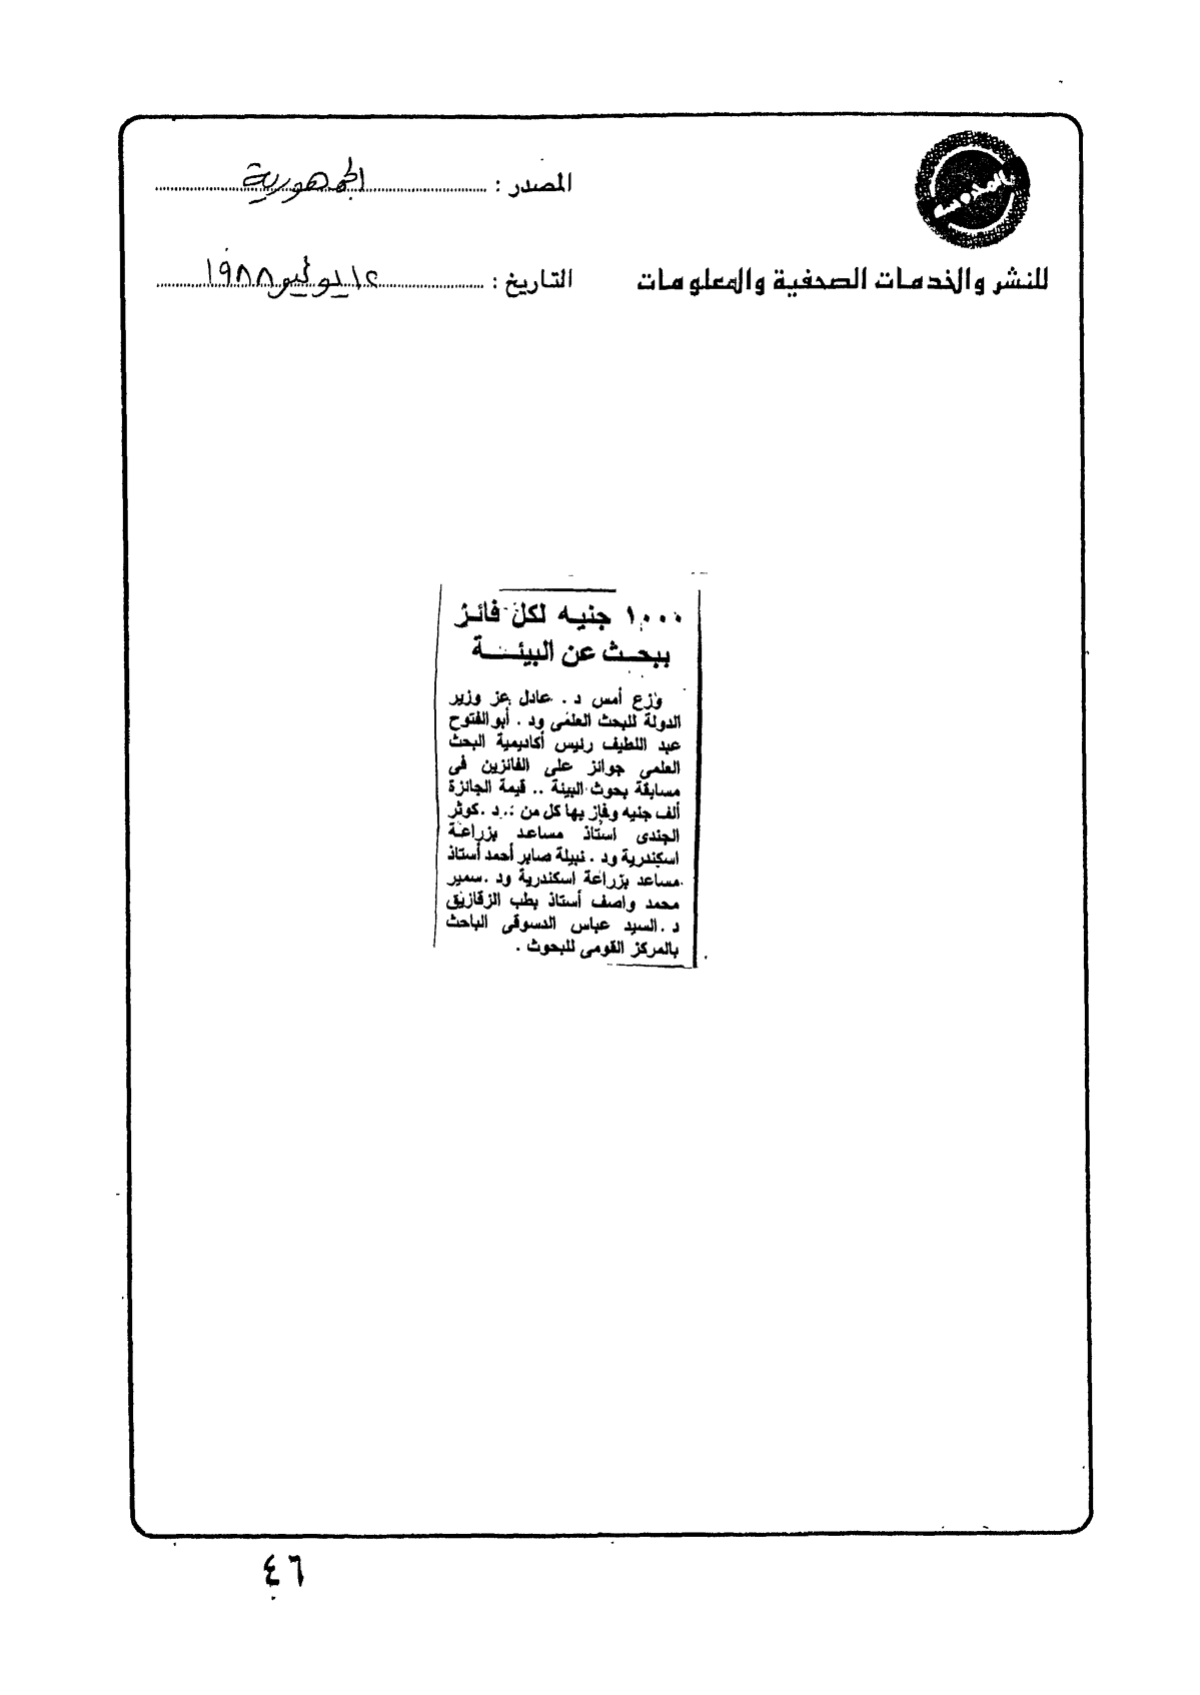 المصدر : الجمهورية
التاريخ : ١٢ يوليو ١٩٨٨
للنشر والخدمات الصحفية والمعلومات
١٠٠٠ جنيه لكل فائز
ببحث عن البيئة
وزع أمس د . عادل عز وزير
الدولة للبحث العلمى ود . أبو الفتوح
عبد اللطيف رئيس أكاديمية البحث
العلمى جوائز على الفائزين فى
مسابقة بحوث البيئة .. قيمة الجائزة
ألف جنيه وفاز بها كل من : د . كوثر
الجندى استاذ مساعد بزراعة
اسكندرية ود . نبيلة صابر أحمد أستاذ
مساعد بزراعة اسكندرية ود . سمير
محمد واصف أستاذ بطب الزقازيق
د . السيد عباس الدسوقى الباحث
بالمركز القومى للبحوث .
٤٦